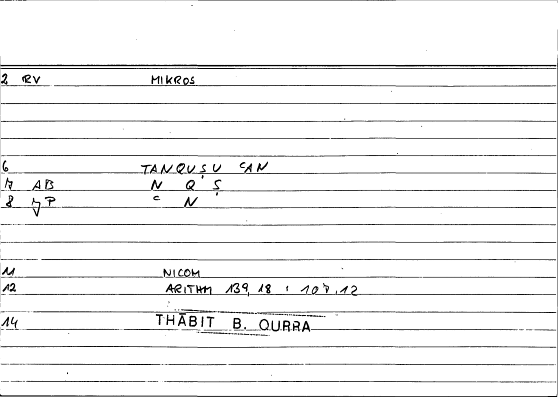 2 RV MIKROS
6 TANQUṢU ᶜAN
7 AB N Q Ṣ
8 ᶜ N
11 NICOM
12 ARITHM 139,18 : 107,12
14 THĀBIT B. QURRA